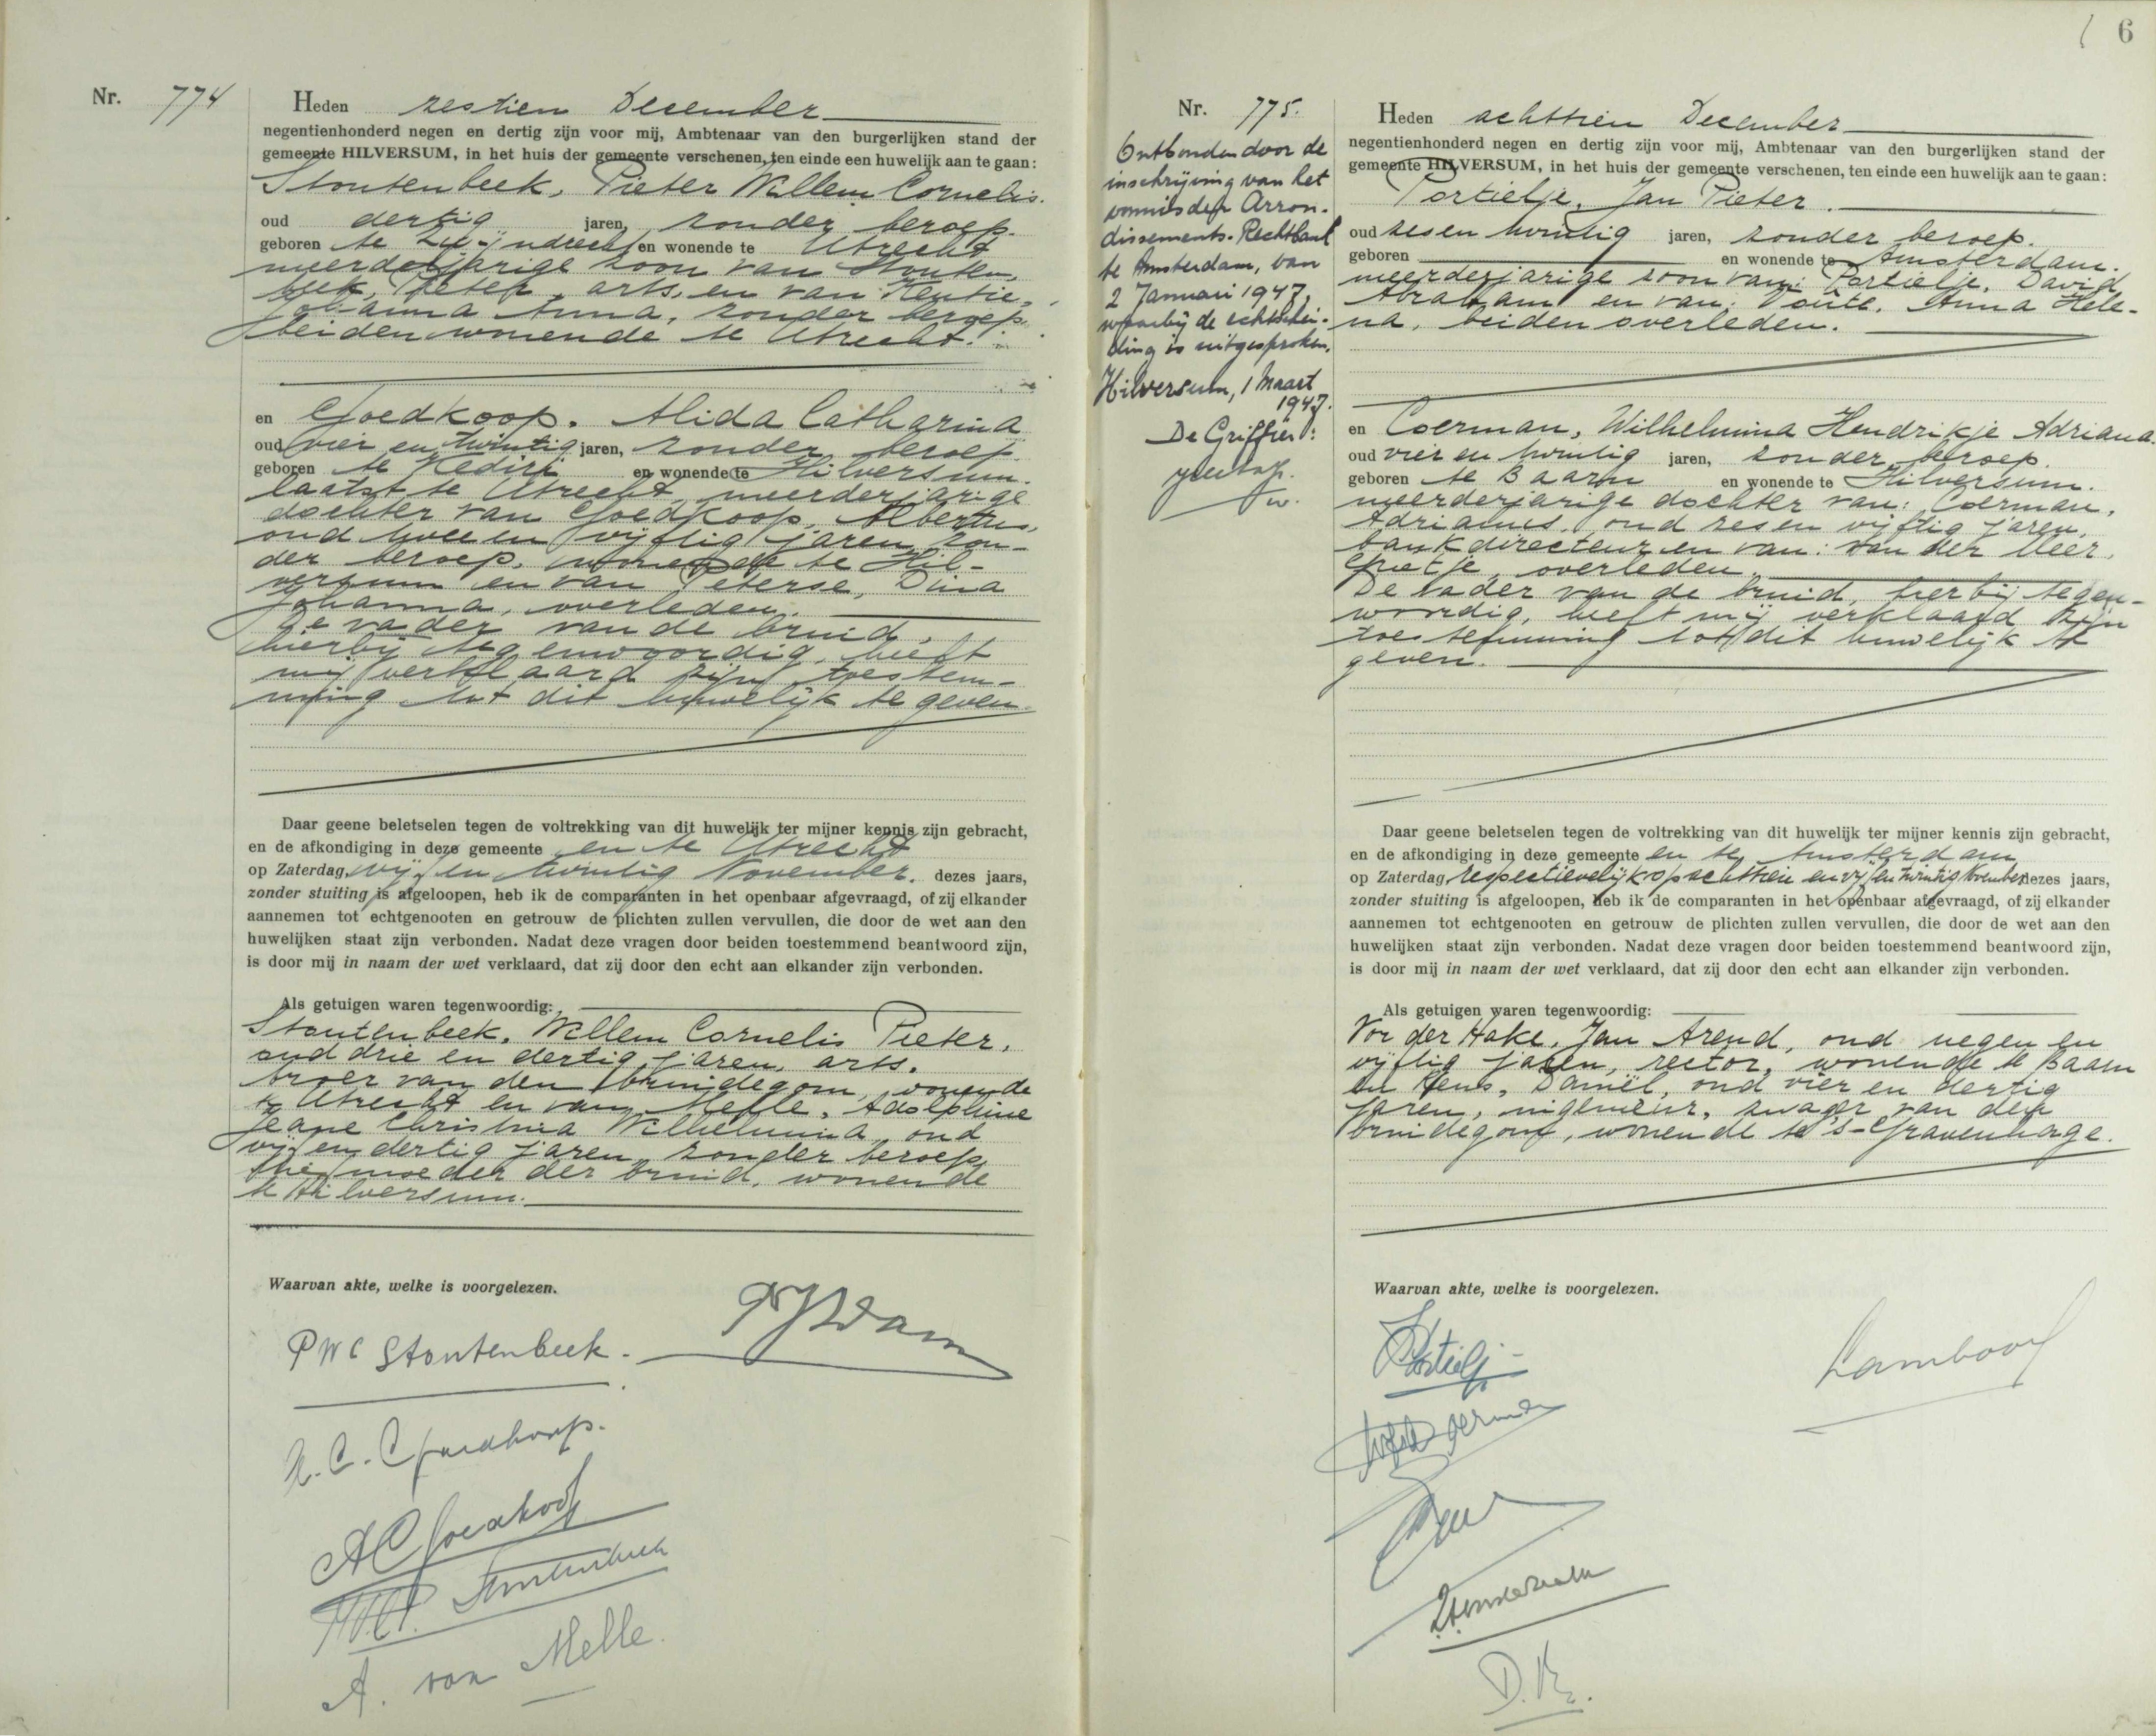 Nr. 774
Heden zestien December
negentienhonderd negen en dertig zijn voor mij, Ambtenaar van den burgerlijken stand der
gemeente HILVERSUM, in het huis der gemeente verschenen, ten einde een huwelijk aan te gaan:
Stoutenbeek, Pieter Willem Cornelis.
oud dertig jaren, zonder beroep.
geboren te en wonende te Utrecht
meerderjarige zoon van Stouten-
beek, Pieter, arts, en van
Johanna Anna, zonder beroep
beiden wonende te Utrecht.
en Goedkoop, Alida Catharina
oud vier en twintig jaren, zonder beroep.
geboren te Kediri en wonende te Hilversum.
laatst te Utrecht, meerderjarige
dochter van Goedkoop, Albertus,
oud twee en vijftig jaren, zon-
der beroep, wonende te Hil-
versum en van Peterse, Dina
Johanna, overleden.
De vader van de bruid,
hierbij tegenwoordig, heeft
mij verklaard zijn toestem-
ming tot dit huwelijk te geven.
Daar geene beletselen tegen de voltrekking van dit huwelijk ter mijner kennis zijn gebracht,
en de afkondiging in deze gemeente en te Utrecht
op Zaterdag, vijf en twintig November. dezes jaars,
zonder stuiting is afgeloopen, heb ik de comparanten in het openbaar afgevraagd, of zij elkander
aannemen tot echtgenooten en getrouw de plichten zullen vervullen, die door de wet aan den
huwelijken staat zijn verbonden. Nadat deze vragen door beiden toestemmend beantwoord zijn,
is door mij in naam der wet verklaard, dat zij door den echt aan elkander zijn verbonden.
Als getuigen waren tegenwoordig:
Stoutenbeek, Willem Cornelis Pieter,
oud drie en dertig jaren, arts.
broer van den bruidegom, wonende
te Utrecht en van Melle, Adolphine
Jeane Christina Wilhelmina, oud
vijf en dertig jaren, zonder beroep,
moeder der bruid, wonende
te Hilversum.
Waarvan akte, welke is voorgelezen.
PWC Stoutenbeek.
A. C. Goedkoop.
A Goedkoop
W.C.P. Stoutenbeek
A. van Melle.
6
Nr. 775.
Ontbonden door de
inschrijving van het
vonnis der Arron-
dissements-Rechtbank
te Amsterdam, van
2 Januari 1947,
waarbij de echtschei-
ding is uitgesproken.
Hilversum, 1 Maart
1947.
De Griffier:
Heden achttien December
negentienhonderd negen en dertig zijn voor mij, Ambtenaar van den burgerlijken stand der
gemeente HILVERSUM, in het huis der gemeente verschenen, ten einde een huwelijk aan te gaan:
Portielje, Jan Pieter.
oud zes en twintig jaren, zonder beroep.
geboren en wonende te Amsterdam.
meerderjarige zoon van: Portielje, David
Abraham en van: Voûte, Anna Hele-
na, beiden overleden.
en Coerman, Wilhelmina Hendrikje Adriana.
oud vier en twintig jaren, zonder beroep.
geboren te Baarn en wonende te Hilversum.
meerderjarige dochter van: Coerman,
Adrianus, oud zes en vijftig jaren,
bankdirecteur en van: van der Meer,
Grietje, overleden.
De vader van de bruid, hierbij tegen-
woordig, heeft mij verklaard zijn
toestemming tot dit huwelijk te
geven.
Daar geene beletselen tegen de voltrekking van dit huwelijk ter mijner kennis zijn gebracht,
en de afkondiging in deze gemeente en te Amsterdam
op Zaterdag, respectievelijk op achttien en vijf en twintig November dezes jaars,
zonder stuiting is afgeloopen, heb ik de comparanten in het openbaar afgevraagd, of zij elkander
aannemen tot echtgenooten en getrouw de plichten zullen vervullen, die door de wet aan den
huwelijken staat zijn verbonden. Nadat deze vragen door beiden toestemmend beantwoord zijn,
is door mij in naam der wet verklaard, dat zij door den echt aan elkander zijn verbonden.
Als getuigen waren tegenwoordig:
Vor der Hake, Jan Arend, oud negen en
vijftig jaren, rector, wonende te Baarn
en Daniël, oud vier en dertig
jaren, ingenieur, zwager van den
bruidegom, wonende te 's-Gravenhage.
Waarvan akte, welke is voorgelezen.
Portielje
Lambooy